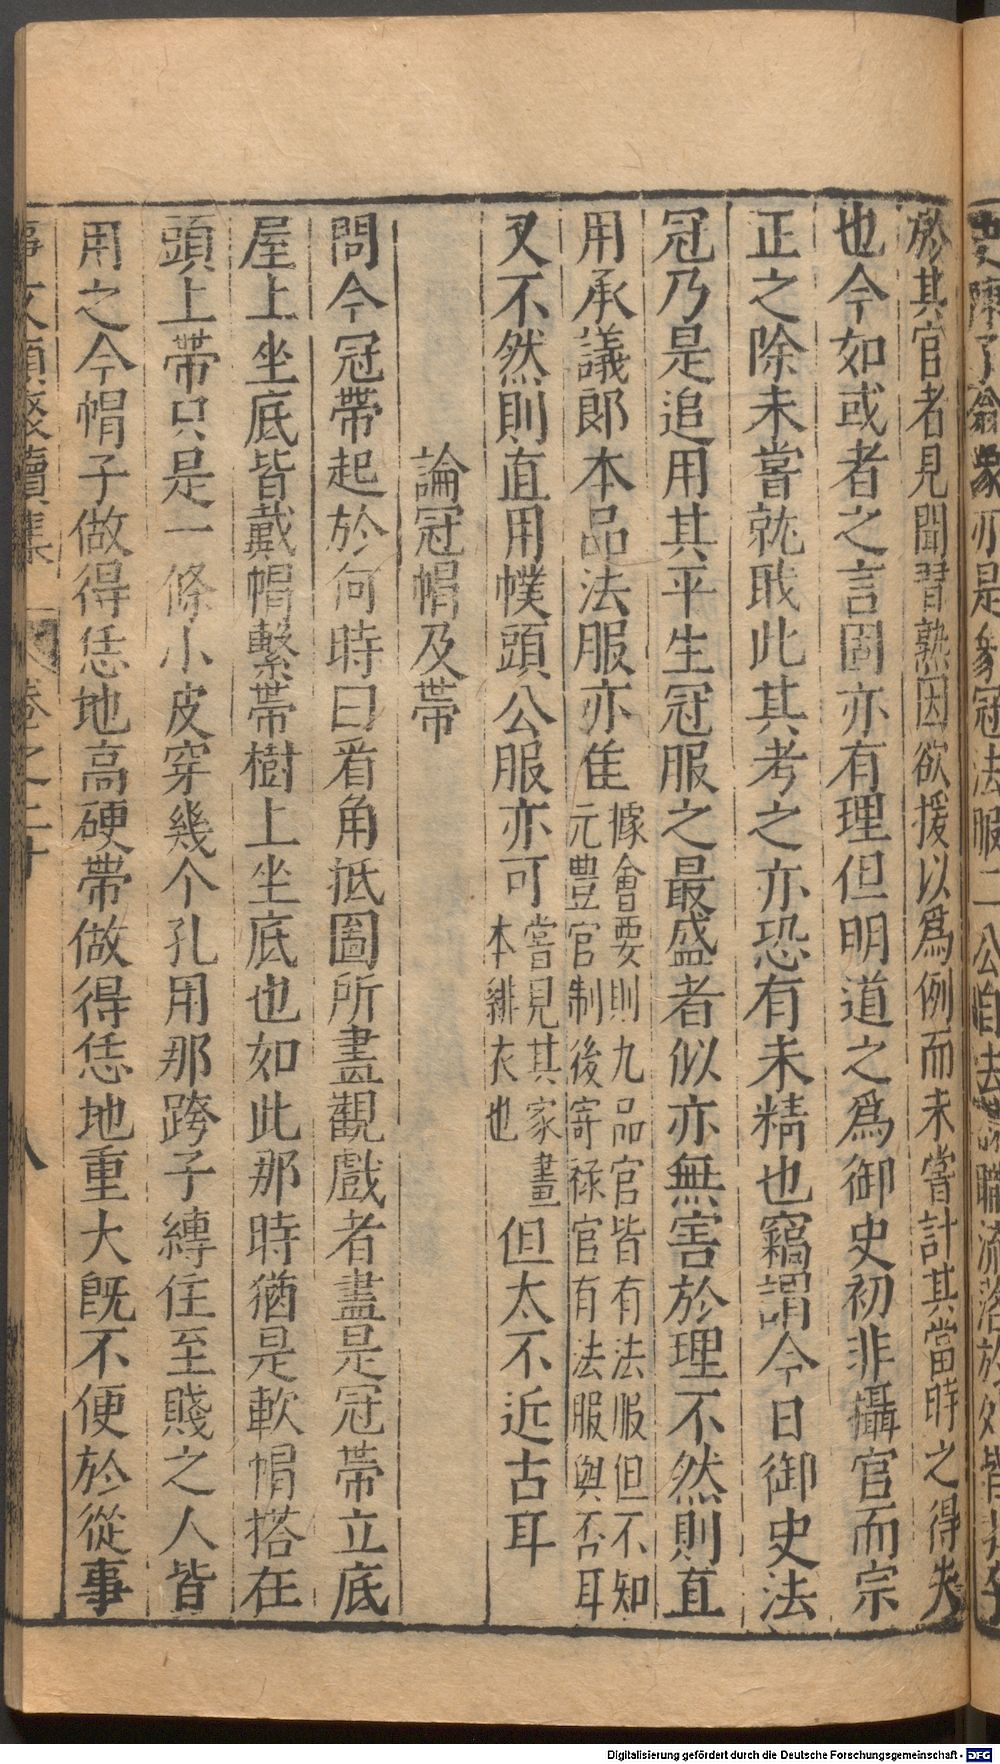 於其官者見聞習熟因欲援以爲例而未嘗計其當時之得失
也今如或者之言固亦有理但明道之爲御史初非攝官而宗
正之除未嘗就戢此其考之亦恐有未精也竊謂今日御史法
冠乃是追用其平生冠服之最盛者似亦無害於理不然則直
用承議郎本品法服亦隹據會要則九品官皆有法服但不知元豐官制後寄祿官有法服與否耳
又不然則直用幞頭公服亦可嘗見其家畫本緋衣也但太不近古耳
論冠帽及帶
問今冠帶起於何時曰看角抵圖所畫觀戲者盡是冠帶立底
屋上坐底皆戴帽繫帶樹上坐底也如此那時猶是軟帽搭在
頭上帶只是一條小皮穿幾个孔用那跨子縛住至賤之人皆
用之今帽子做得恁地高硬帶做得恁地重大既不便於從事
事文類聚續集 卷之二十 八
Digitalisierung gefördert durch die Deutsche Forschungsgemeinschaft - DFG